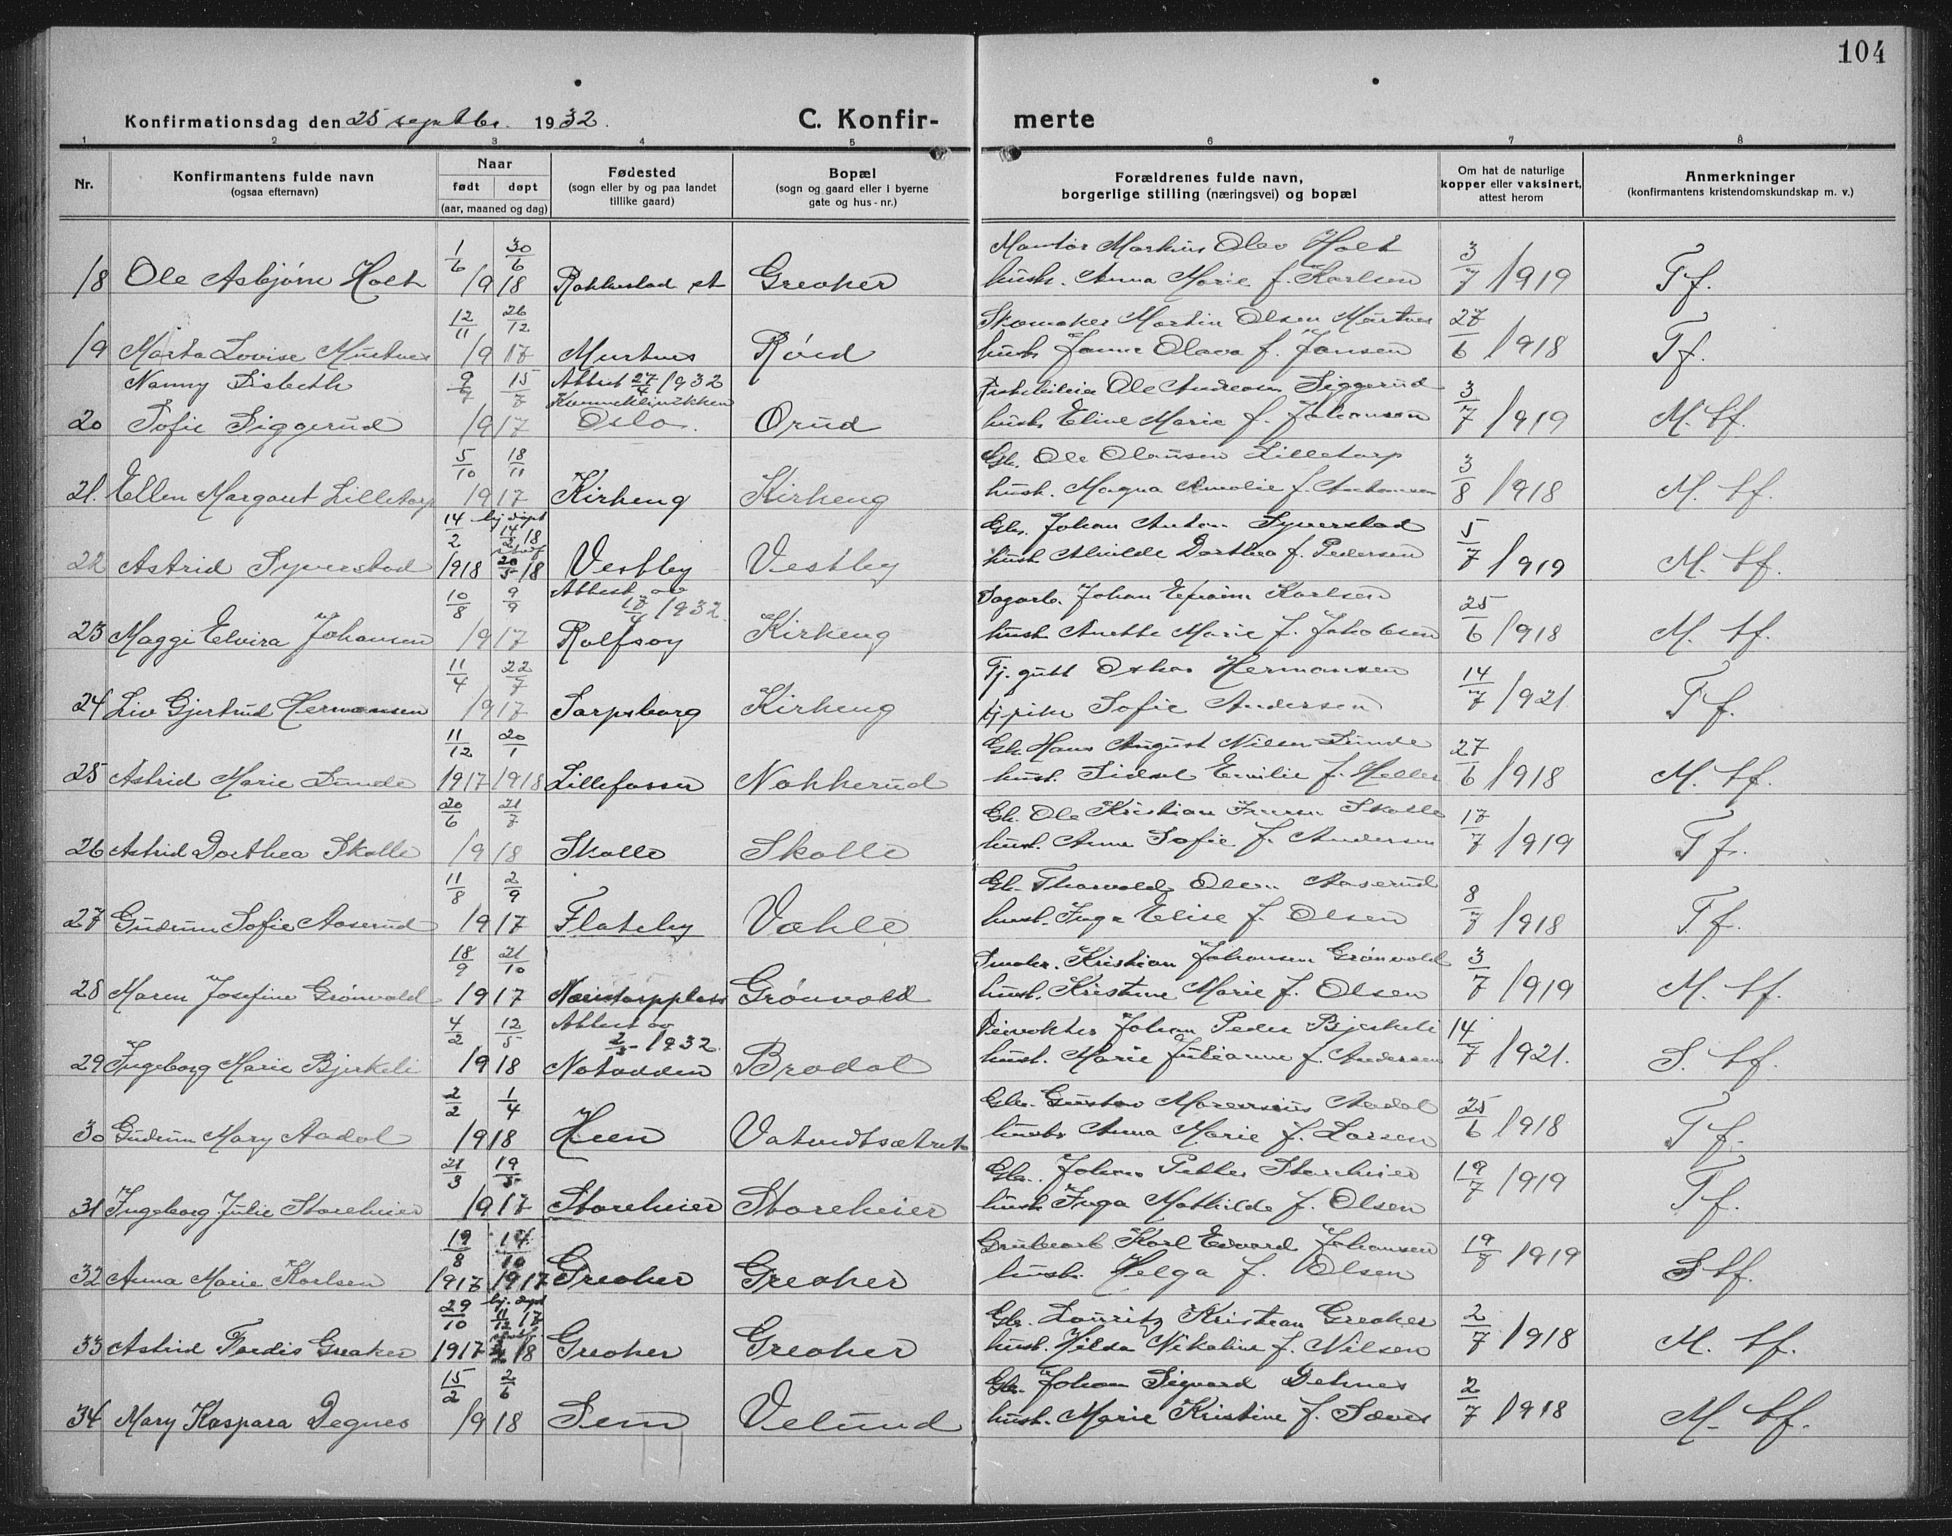 104
Konfirmationsdag den 25 septbr. 1932. C. Konfir- merte
1 2 3 4 5 6 7 8
Nr.
Konfirmantens fulde navn
(ogsaa efternavn)
Naar
født døpt
(aar, maaned og dag)
Fødested
(sogn eller by og paa landet
tillike gaard)
Bopæl
(sogn og gaard eller i byerne
gate og hus-nr.)
Forældrenes fulde navn,
borgerlige stilling (næringsvei) og bopæl
Om hat de naturlige
kopper eller vaksinert,
attest herom
Anmerkninger
(konfirmantens kristendomskundskap m. v.)
1/6 30/6 Montør Markus Olav Holt 3/7
18 Ole Asbjørn Holt 1918 Rakkestad st Greaker hustr. Anna Marie f. Karlsen 1919 T f.
12/11 26/12 Skomaker Martin Olsen 27/6
19 Marta Lovise 1917 Røed hustr. Olava f. Jansen 1918 T f.
Nanny Lisbeth 9/7 15/7 Attest 27/4 1932 Ole Andreas Siggerud 3/7
Kvinneklinikken
20 Sofie Siggerud 1917 Oslo. Orud hustr. Eline Marie f. Johansen 1919 M. tf.
5/10 18/11 Gb. Ole Olausen Lilletorp 3/8
21. Ellen Margaret Lilletorp 1917 Kirkeng Kirkeng hust. Magna Amalie f. 1918 M. tf.
14/2 hj. døpt 14/2 18 Gbr. Johan Anton Syverstad 5/7
22 Astrid Syverstad 1918 20/5 18 Vestby Vestby hust. Dorthea f. Pedersen 1919 M. tf.
10/8 9/9 Attest av 1932. Sagarb. Johan Efraim Karlsen 25/6
23 Maggi Elvira Johansen 1917 Rolfsøy Kirkeng hust. Anette Marie f. Jakobsen 1918 M. tf.
11/4 22/7 Tj. gutt Oskar Hermansen 14/7
24 Liv Gjertrud Hermansen 1917 Sarpsborg Kirkeng tj. pike Sofie Andersen 1921. T f.
11/12 20/1 Gb. Hans August Nilsen Lunde 27/6
25 Astrid Marie Lunde 1917 1918 Lillefossen Nakkerud hust. Emilie f. 1918 M. tf.
20/6 21/7 Gb. Ole Kristian Skolle 17/7
26 Astrid Dorthea Skolle 1918 Skolle Skolle hust. Anna Sofie f. Andersen 1919 T f.
11/8 2/9 Gb. Thorvald Olsen Aaserud 8/7
27 Gudrun Sofie Aaserud 1917 Flateby Vahle hust. Inga Elise f. Olsen 1918 T f.
18/9 21/10 Kristian Johansen Grønvold 3/7
28 Maren Josefine Grønvold 1917 Grønvold hust. Kristine Marie f. Olsen 1919 M. tf.
4/2 12/5 Attest av 2/5 1932. Veivokter Johan Peder Bjerkeli 14/7
29 Ingeborg Marie Bjerkeli 1918 Notodden Brodal hust. Marie Julianne f. Andersen 1921. S. tf.
2/2 1/4 Gbr. Gustav Aadal 25/6
30 Gudrun Mary Aadal 1918 Heen Vatvedtsætret hustr. Anna Marie f. Larsen 1918 T f.
21/3 19/5 Gbr. Johan Petter Storeheier 19/7 1919
31 Ingeborg Julie Storeheier 1917 Storeheier Storeheier hust. Inga Mathilde f. Olsen T f.
19/8 14/10 Grubearb. Karl Edvard Johansen 19/7 1919
32 Anna Marie Karlsen 1917 1917 Greaker Greaker hustr. Helga f. Olsen S tf.
29/10 hj. døpt 11/12 17 Gbr. Lauritz Kristian Greaker 2/7
33 Astrid Fordis Greaker 1917 18 Greaker Greaker hust. Hilda Nikoline f. Nilsen 1918 M. tf.
15/2 2/6 Gbr. Johan Sigvard Degnes 2/7
34 Mary Kaspara Degnes 1918 Sem Velund hust. Marie Kristine f. 1918 M. tf.